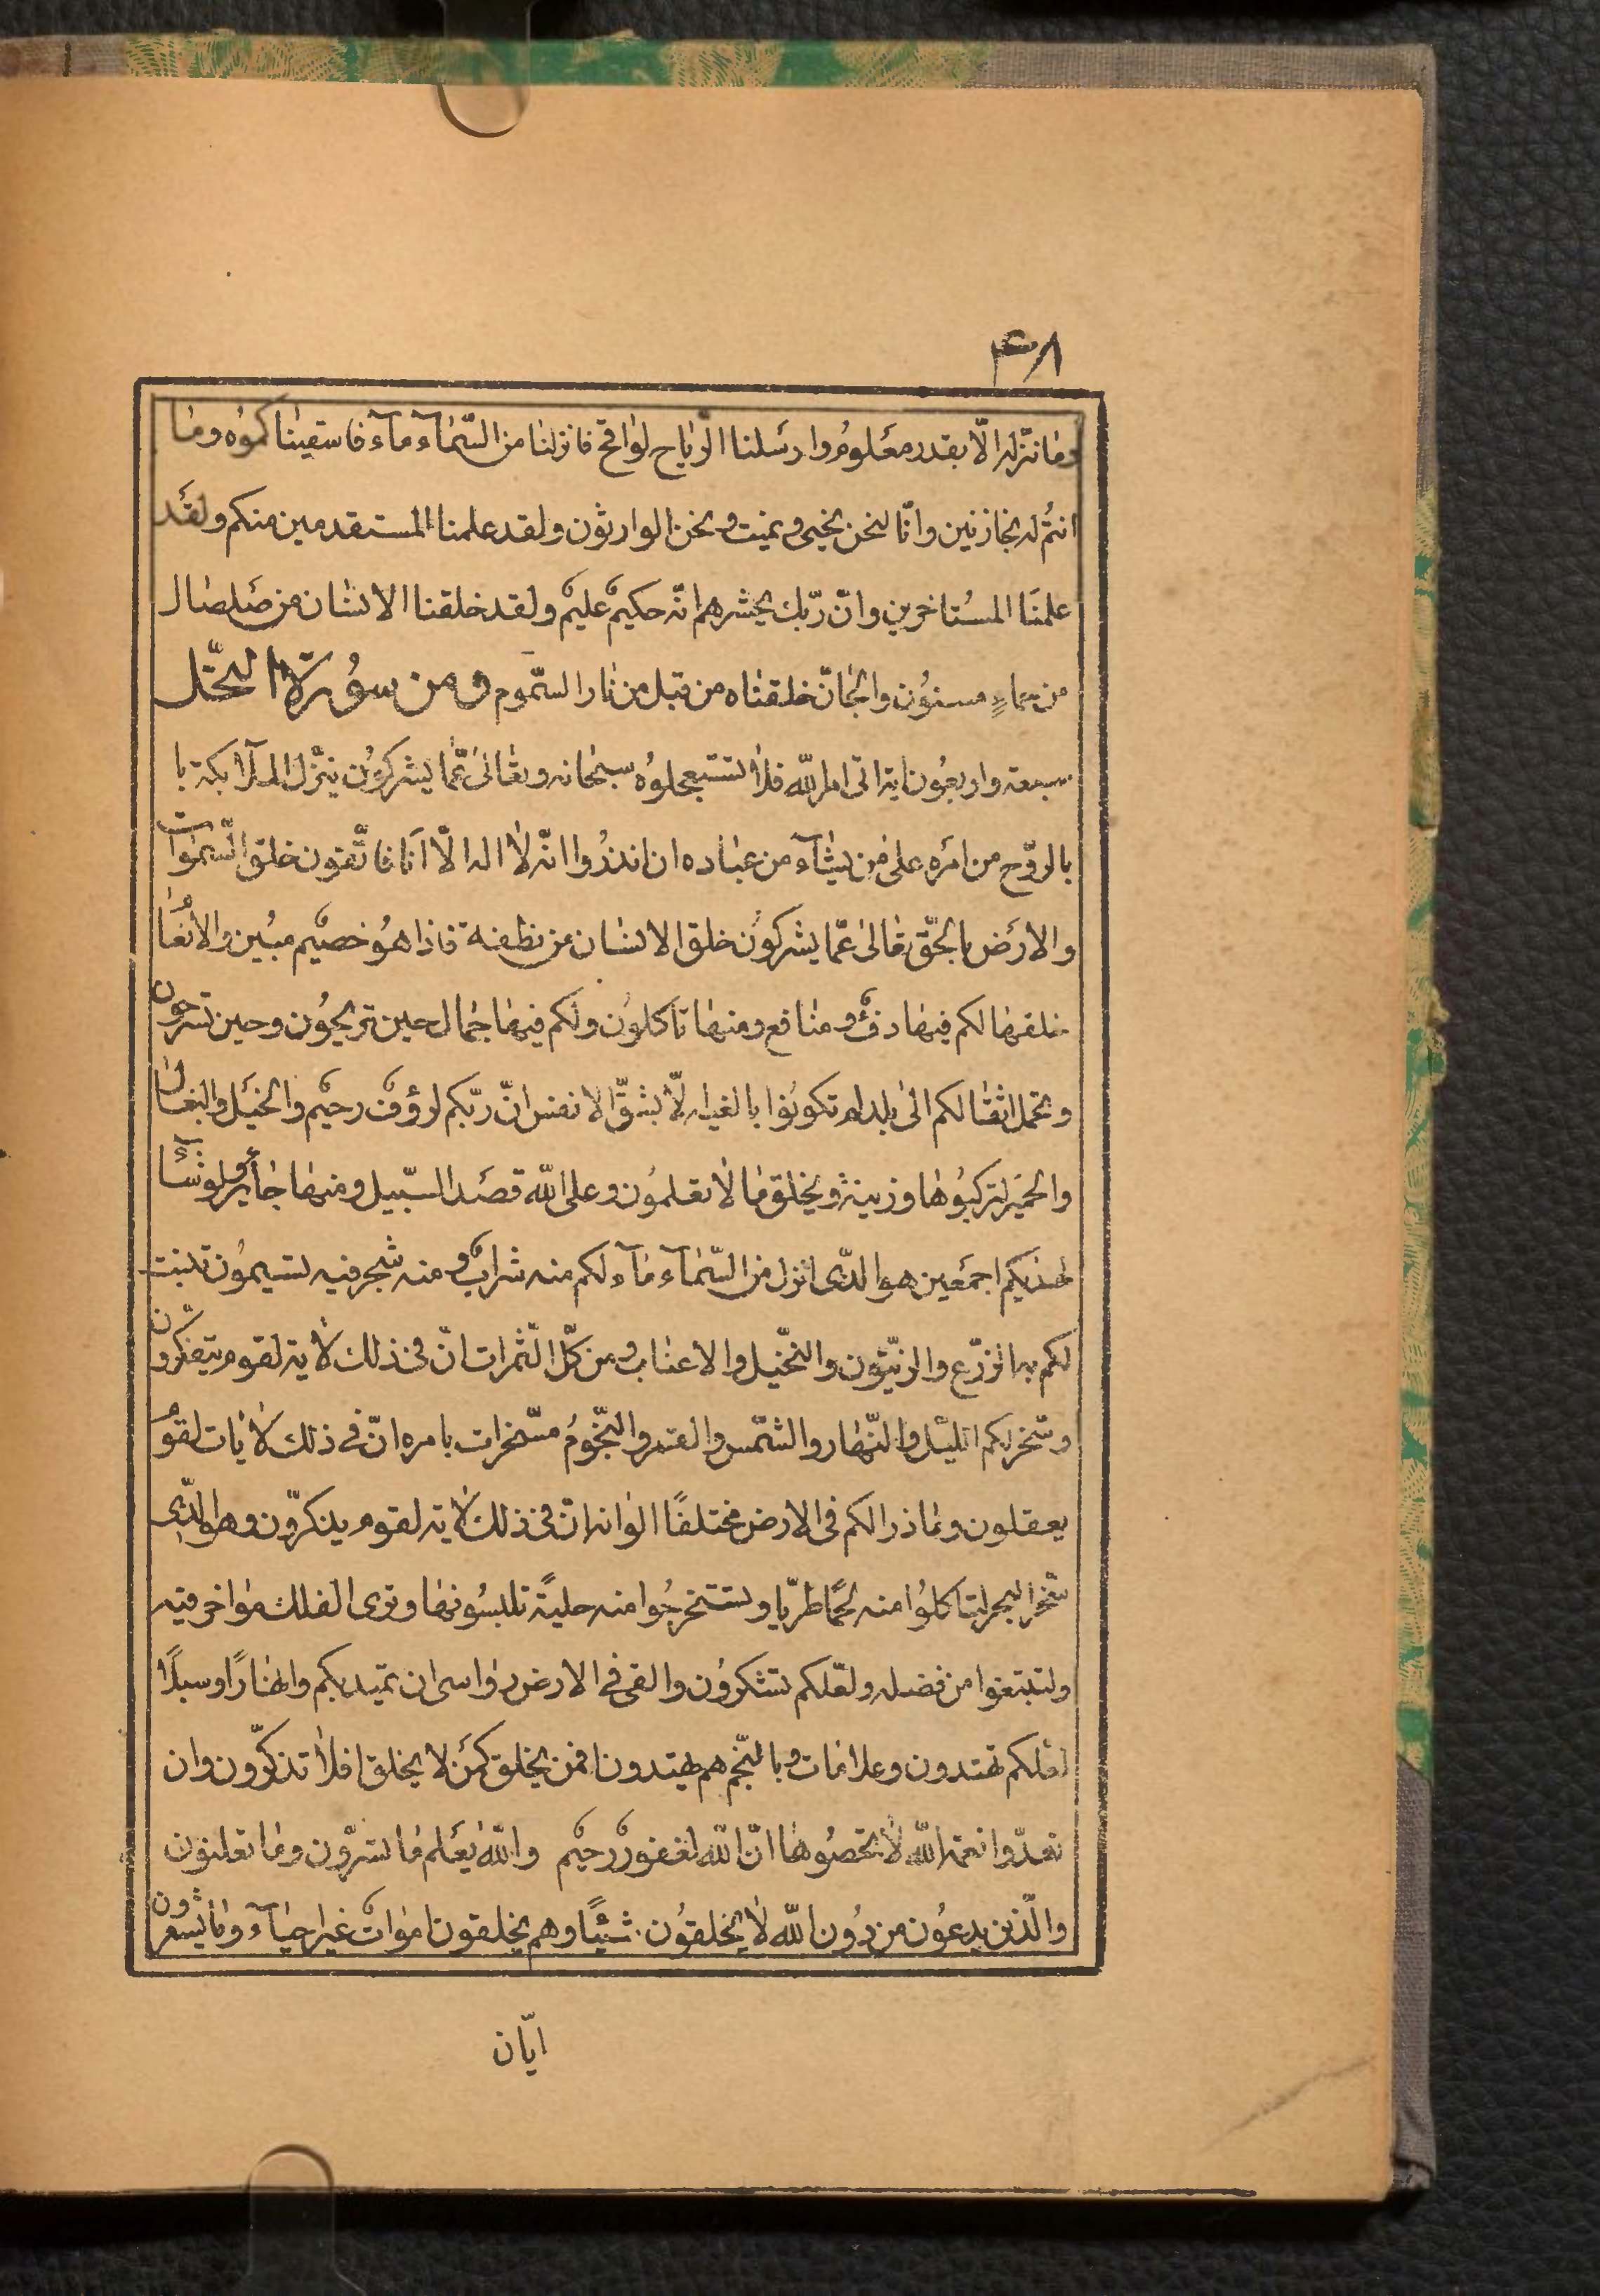 ۴۸
وما ننزّله الّا بقدر معلوم وارسلنا الرّياح لواقح فانزلنا من السّمآء مآء فاسقيناكموه وما
انتم له بخازنين وانّا لنحن نحيى ونميت ونحن الوارثون ولقد علمنا المستقدمين منكم ولقد
علمنا المستاخرين وانّ ربّك يحشرهم انّه حكيمٌ عليمٌ ولقد خلقنا الانسان من صلصال
من حماءٍ مسنون والجانّ خلقناه من قبل من نار السّموم ومن سورة النّحل
سبعة واربعون اية اتى امر الله فلا تستعجلوه سبحانه وتعالى عمّا يشركون ينزّل الملآئكة با
بالرّوح من امره على من يشآء من عباده ان انذروا انّه لا اله الّا انا فاتّقون خلق السّموات
والارض بالحقّ تعالى عمّا يشركون خلق الانسان من نطفة فاذا هو خصيم مبين والانعام
خلقها لكم فيها دفءٌ ومنافع ومنها تاكلون ولكم فيها جمال حين تريحون وحين تسرحون
وتحمل اثقالكم الى بلد لم تكونوا بالغيه الّا بشقّ الانفس انّ ربّكم لرؤفٌ رحيم والخيل والبغال
والحمير لتركبوها وزينة ويخلق ما لا تعلمون وعلى الله قصد السّبيل ومنها جائر ولو شآء
لهديكم اجمعين هو الّذى انزل من السّمآء مآء لكم منه شرابٌ ومنه شجر فيه تسيمون تنبت
لكم به الزّرع والزّيتون والنّخيل والاعناب ومن كلّ الثّمرات انّ فى ذلك لاية لقوم يتفكّرون
وسّخر لكم اللّيل والنّهار والشّمس والقمر والنّجوم مسّخرات بامره انّ فى ذلك لايات لقوم
يعقلون وما ذرا لكم فى الارض مختلفًا الوانه انّ فى ذلك لاية لقوم يذكرّون وهو الّذى
سّخر البحر لتاكلوا منه لحمًا طريّا وتستخرجوا منه حليةً تلبسونها وترى الفلك مواخر فيه
ولتبتغوا من فضله ولعّلكم تشكرون والقى فى الارض رواسى ان تميد بكم وانهارًا وسبلًا
لعلكم تهتدون وعلامات وبالنّجم هم يهتدون افمن يخلق كمن لا يخلق افلا تذكّرون وان
تعدّوا نعمة الله لا تحصوها انّ الله لغفورٌ رحيم والله يعلم ما تسرّون وما تعلنون
والّذين يدعون من دون الله لا يخلقون شيئًا وهم يخلقون امواتٌ غير احيآء وما يشعرون
ايّان